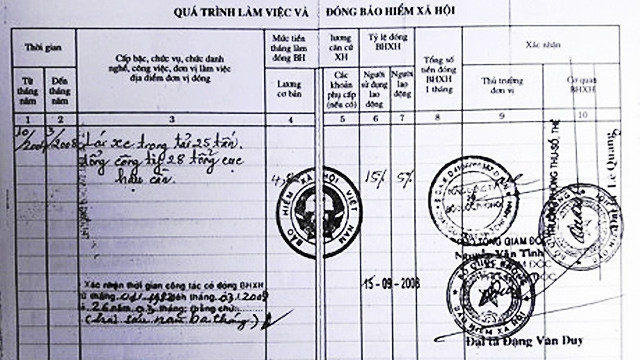 QUÁ TRÌNH LÀM VIỆC VÀ ĐÓNG BẢO HIỂM XÃ HỘI
Thời gian
Từ tháng năm
Đến tháng năm
Cấp bậc, chức vụ, chức danh nghề, công việc, đơn vị làm việc địa điểm đơn vị đóng
Mức tiền tháng làm đóng BH
Lương cơ bản
lương căn cứ XH
Các khoản phụ cấp (nếu có)
Tỷ lệ đóng BHXH
Người sử dụng lao động
Người lao động
Tổng số tiền đóng BHXH 1 tháng
Xác nhận
Thủ trưởng đơn vị
Cơ quan BHXH
1 2 3 4 5 6 7 8 9 10
3/2008
Lái xe trọng tải 25 tấn.
Tổng công ty 28 tổng cục
hậu cần.
15% 5%
BẢO HIỂM XÃ HỘI VIỆT NAM
PHÓ TỔNG GIÁM ĐỐC
Nguyễn Văn Tình
15-09-2008
BỘ QUỐC PHÒNG
BẢO HIỂM XÃ HỘI
Xác nhận thời gian công tác có đóng BHXH
từ tháng 01.1982 đến tháng 03.2008
= 26 năm 03 tháng; (bằng chữ:
(hai sáu năm ba tháng)
Đại tá Đặng Văn Duy